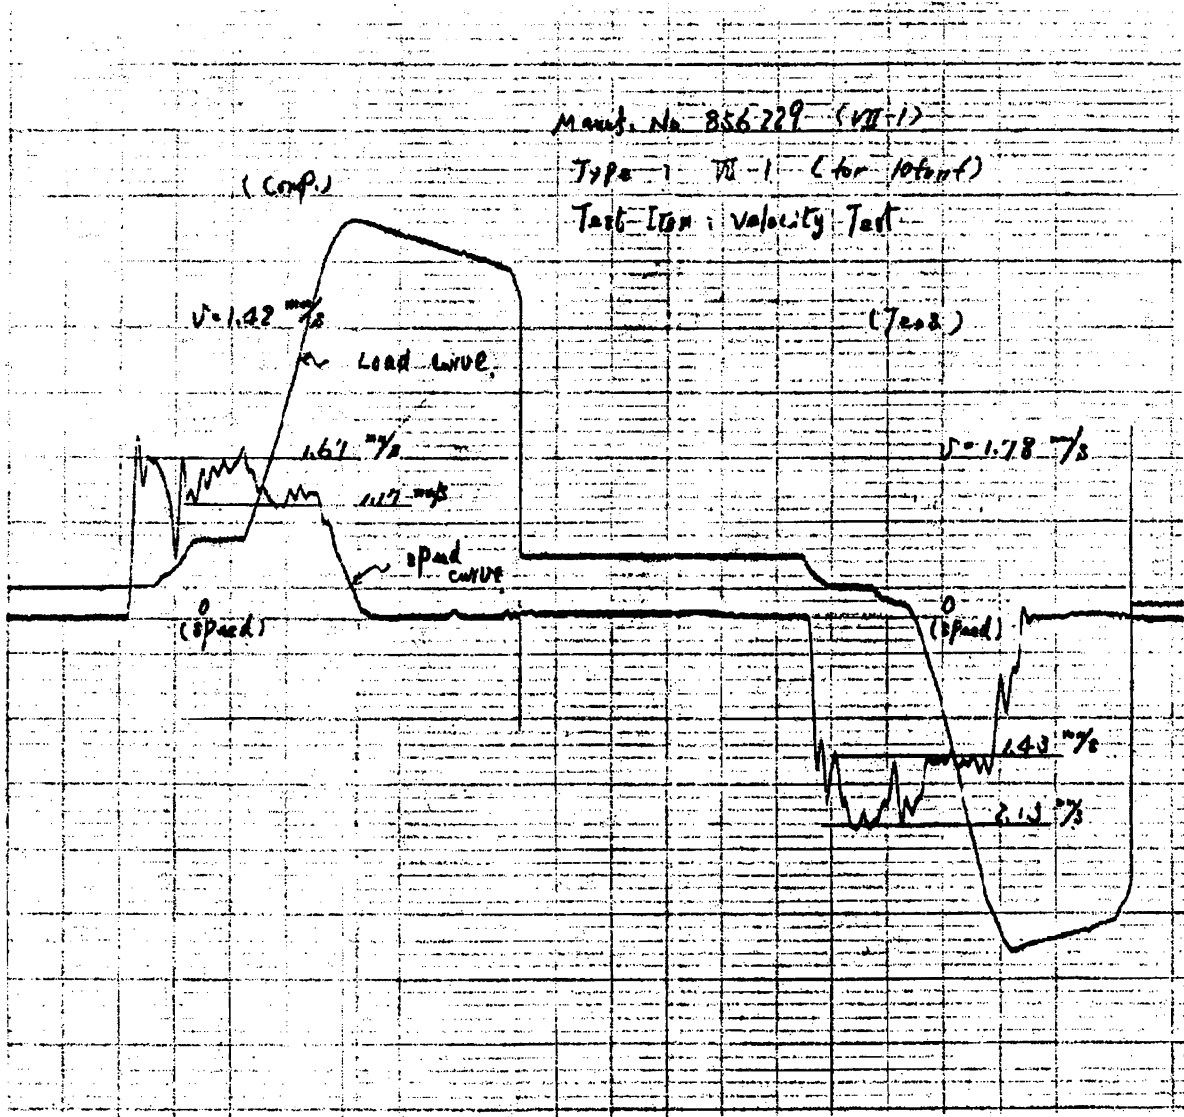 Manuf. No 856229 (VII-1)
Type : VII-1 (for 10tonf)
Test Item : Velocity Test
(Comp.)
v=1.42 mm/s
Load curve.
(Tens.)
1.67 mm/s
v=1.78 mm/s
1.17 mm/s
speed
curve
0
(speed)
0
(speed)
1.43 mm/s
2.13 mm/s